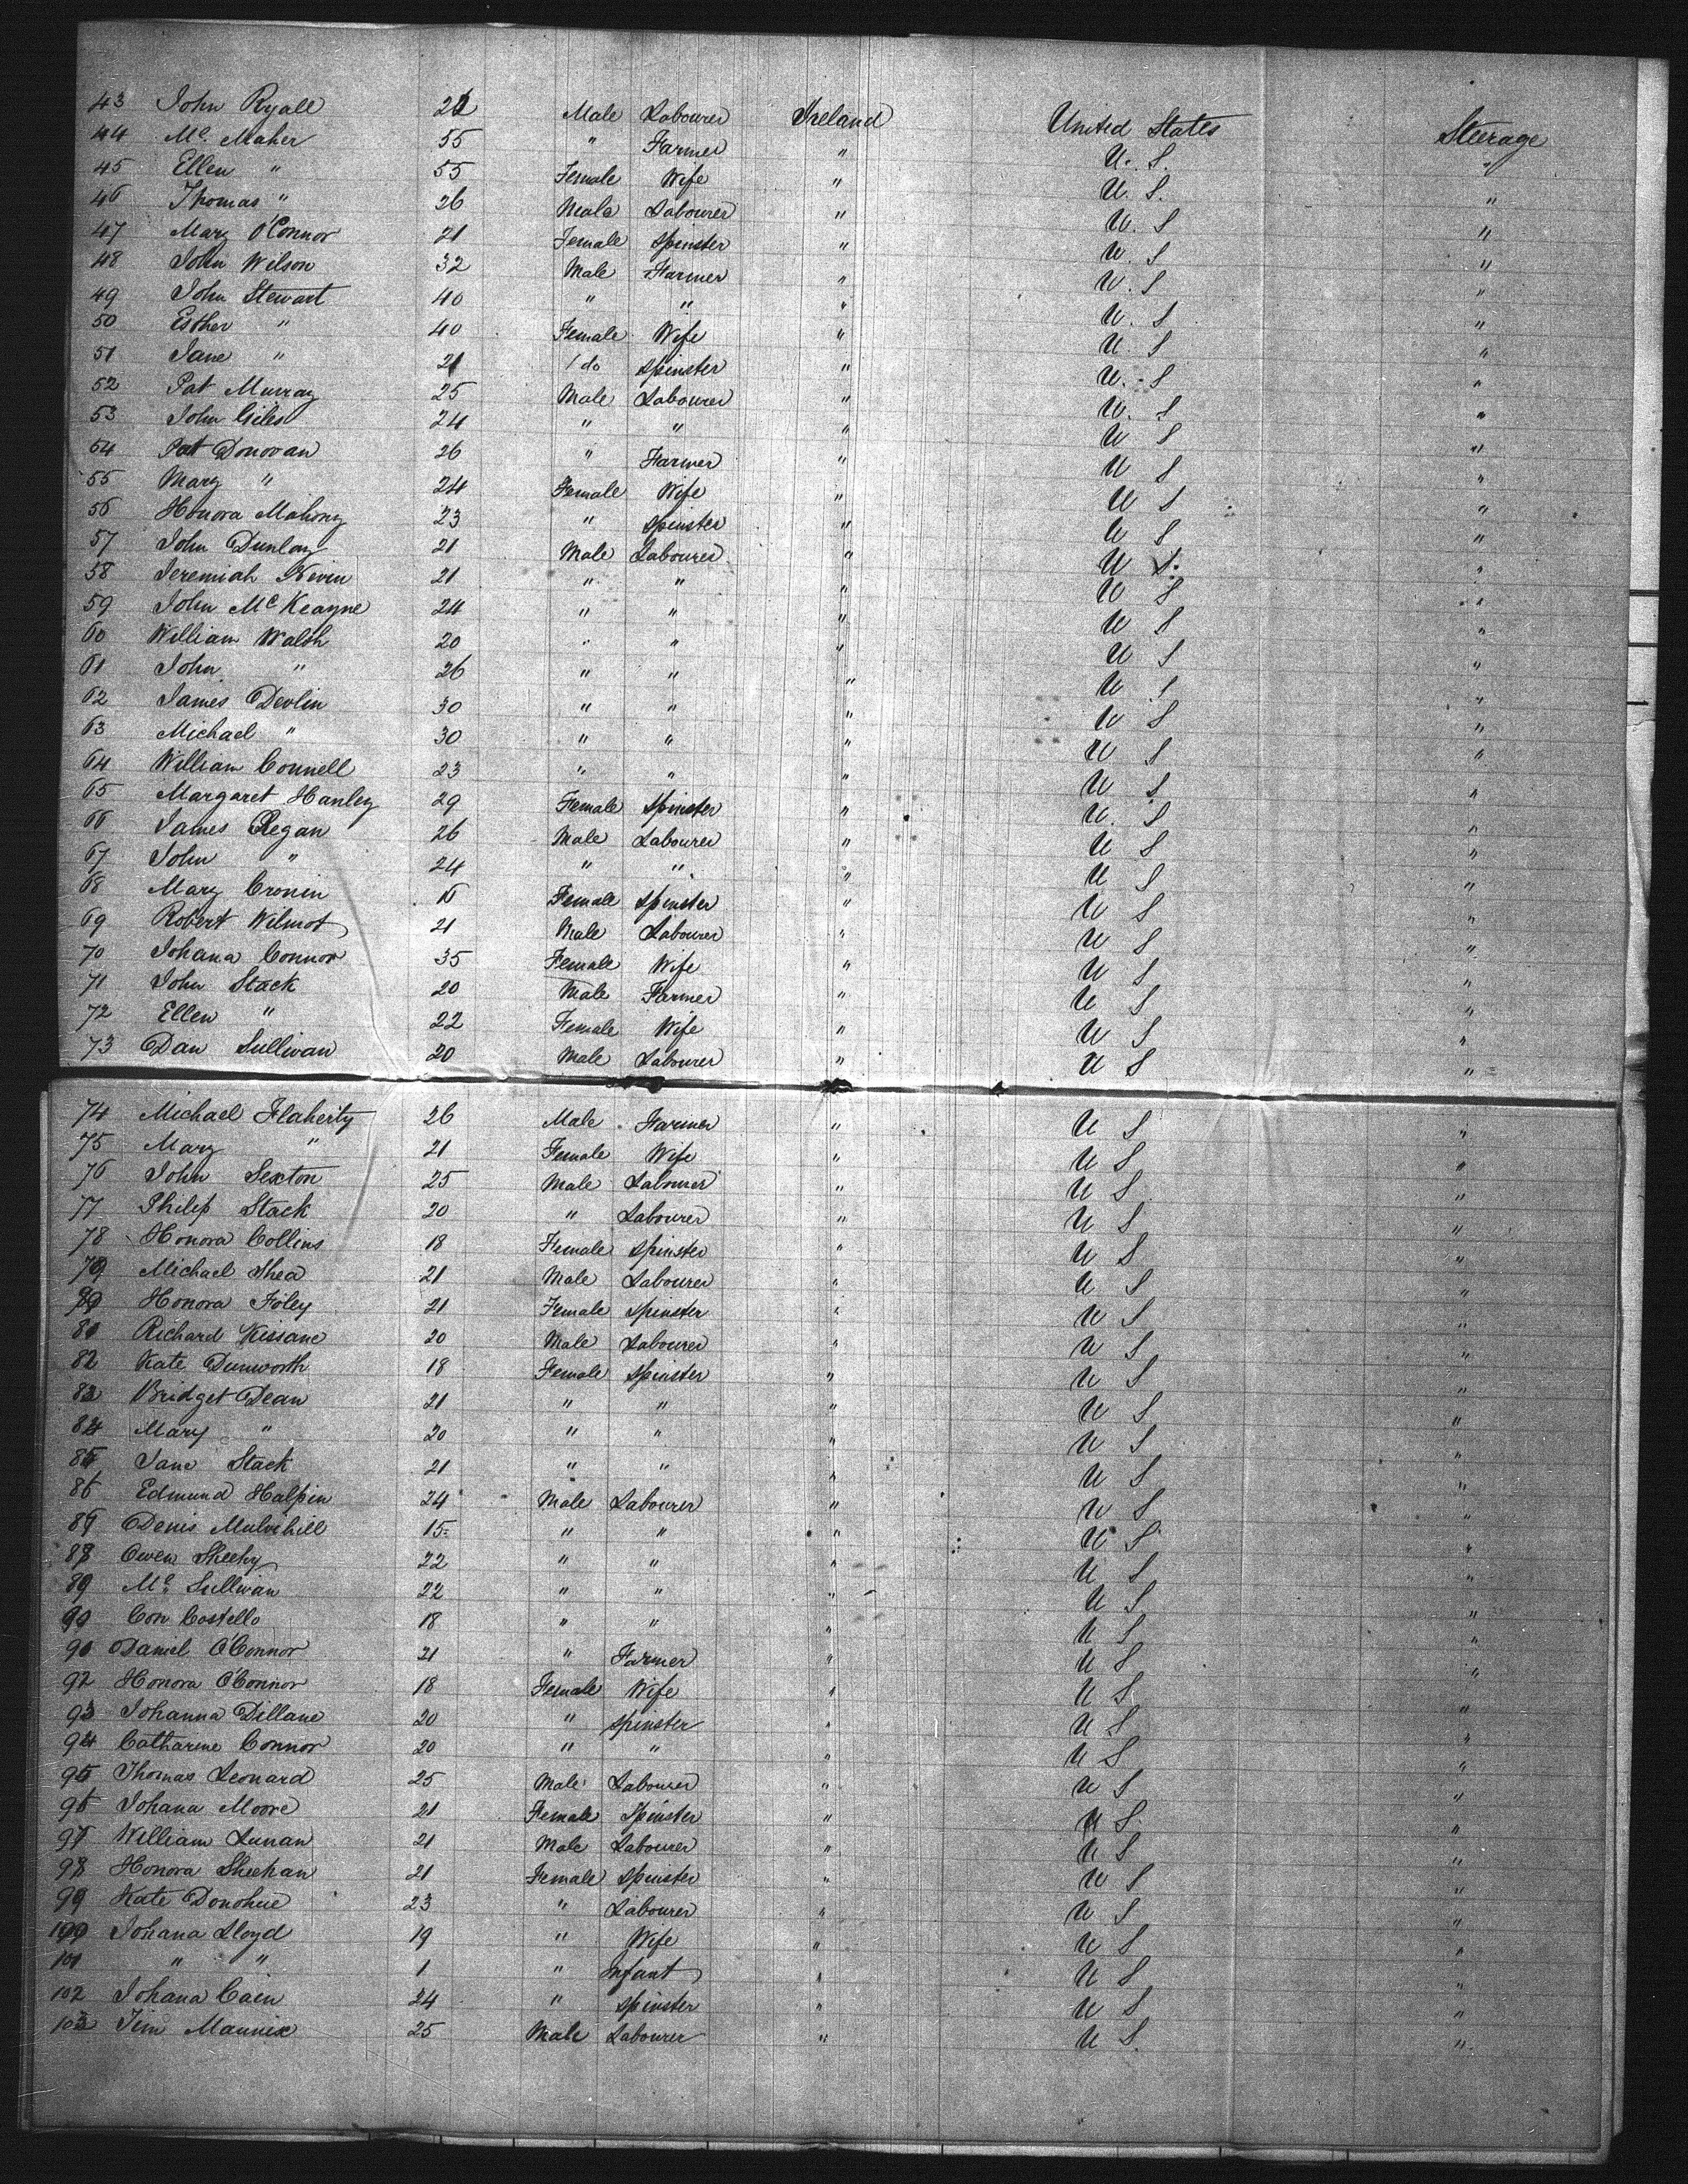 43 John Ryall 21 Male Labourer Ireland United States Steerage
44 Mc. Maher 55 " Farmer " U. S. "
45 Ellen " 55 Female Wife " U. S. "
46 Thomas " 26 Male Labourer " U. S "
47 Mary O'Connor 21 Female Spinster " U. S "
48 John Wilson 32 Male Farmer " U. S "
49 John Stewart 40 " " " U. S "
50 Esther " 40 Female Wife " U. S "
51 Jane " 21 do Spinster " U. S "
52 Pat Murray 25 Male Labourer " U. S "
53 John Giles 24 " " " U S "
54 Pat Donovan 26 " Farmer " U S "
55 Mary " 24 Female Wife " U S "
56 Honora Mahony 23 " Spinster " U S "
57 John Dunlay 21 Male Labourer " U S. "
58 Jeremiah Kevin 21 " " " U S "
59 John McKeayne 24 " " " U S "
60 William Walsh 20 " " " U S "
61 John " 26 " " " U S "
62 James Devlin 30 " " " U S "
63 Michael " 30 " " " U S "
64 William Connell 23 " " " U S "
65 Margaret Hanley 29 Female Spinster " U. S "
66 James Regan 26 Male Labourer " U S "
67 John " 24 " " " U S "
68 Mary Cronin 16 Female Spinster " U S "
69 Robert Wilmot 21 Male Labourer " U S "
70 Johana Connor 35 Female Wife " U S "
71 John Stack 20 Male Farmer " U S "
72 Ellen " 22 Female Wife " U S "
73 Dan Sullivan 20 Male Labourer " U S "
74 Michael Flaherty 26 Male Farmer " U S "
75 Mary " 21 Female Wife " U S "
76 John Sexton 25 Male Labourer " U S "
77 Philip Stack 20 " Labourer " U S "
78 Honora Collins 18 Female Spinster " U S "
79 Michael Shea 21 Male Labourer " U S "
80 Honora Foley 21 Female Spinster " U S "
81 Richard Kissane 20 Male Labourer " U S "
82 Kate Dunworth 18 Female Spinster " U S "
83 Bridget Dean 21 " " " U S "
84 Mary " 20 " " " U S "
85 Jane Stack 21 " " " U S "
86 Edmund Halpin 24 Male Labourer " U S "
87 Denis Mulvihill 15 " " " U S "
88 Owen Sheehy 22 " " " U S "
89 Mc. Sullivan 22 " " " U S "
90 Con Costello 18 " " " U S "
91 Daniel O'Connor 21 " Farmer " U S "
92 Honora O'Connor 18 Female Wife " U S "
93 Johanna Dillane 20 " Spinster " U S "
94 Catharine Connor 20 " " " U S "
95 Thomas Leonard 25 Male Labourer " U S "
96 Johana Moore 21 Female Spinster " U S "
97 William Lunan 21 Male Labourer " U S "
98 Honora Sheehan 21 Female Spinster " U S "
99 Kate Donohue 23 " Labourer " U S "
100 Johana Lloyd 19 " Wife " U S "
101 " " 1 " Infant " U S "
102 Johana Cain 24 " Spinster " U S "
103 Jim Mannix 25 Male Labourer " U S. "